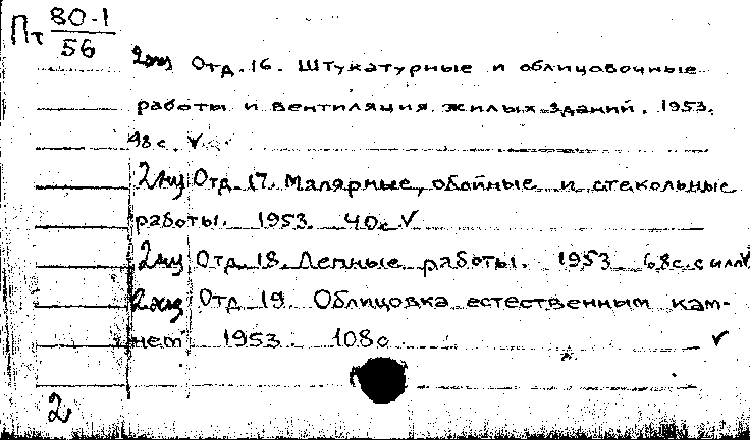 Пт 80-1
56
2экз Отд. 16. Штукатурные и облицовочные
работы и вентиляция жилых зданий. 1953.
48с. ✓
2экз Отд. 17. Малярные, обойные и стекольные
работы. 1953. 40с ✓
2экз Отд. 18. Лепные работы. 1953 68с. с илл ✓
2экз Отд 19. Облицовка естественным кам-
нем 1953. 108с ✓
2